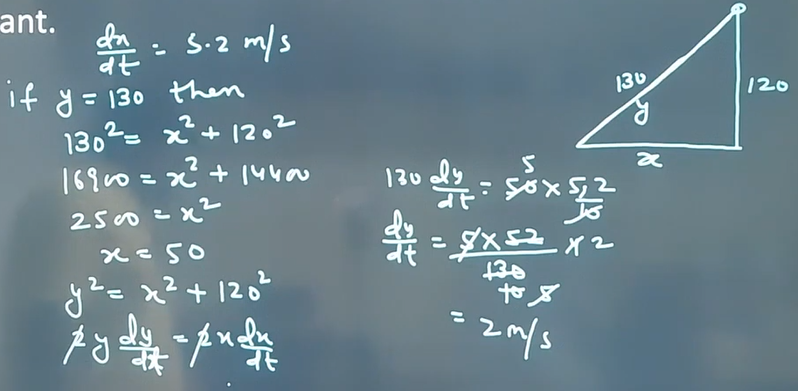 ant.
dx/dt = 5.2 m/s
if y = 130 then
130² = x² + 120²
16900 = x² + 14400
2500 = x²
x = 50
y² = x² + 120²
2y dy/dt = 2x dx/dt
130 dy/dt = 50 5 × 5.2/10
dy/dt = 5 × 52/130 × 2
10 5
= 2 m/s
130
y
120
x